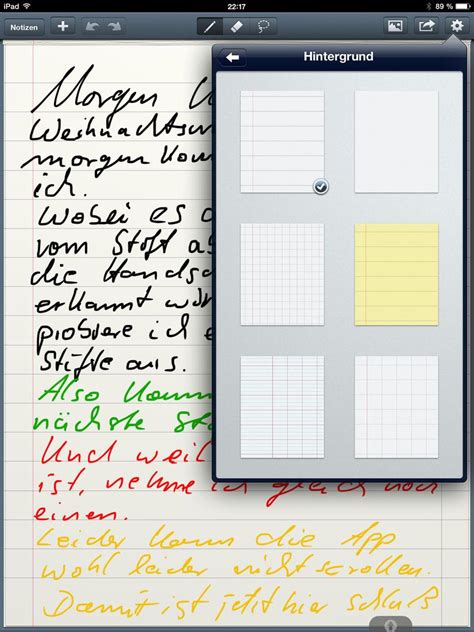 iPad 22:17 89 %
Notizen
Hintergrund
Morgen
Weihnachtsm
morgen kom
ich.
Wobei es
vom Stift a
die Handsc
erkannt wür
probiere ich
Stifte aus.
Also komm
nächste St
Und weil
ist, nehme ich gleich noch
einen.
Leider kann die App
wohl leider nicht scrollen.
Damit ist jetzt hier schluß